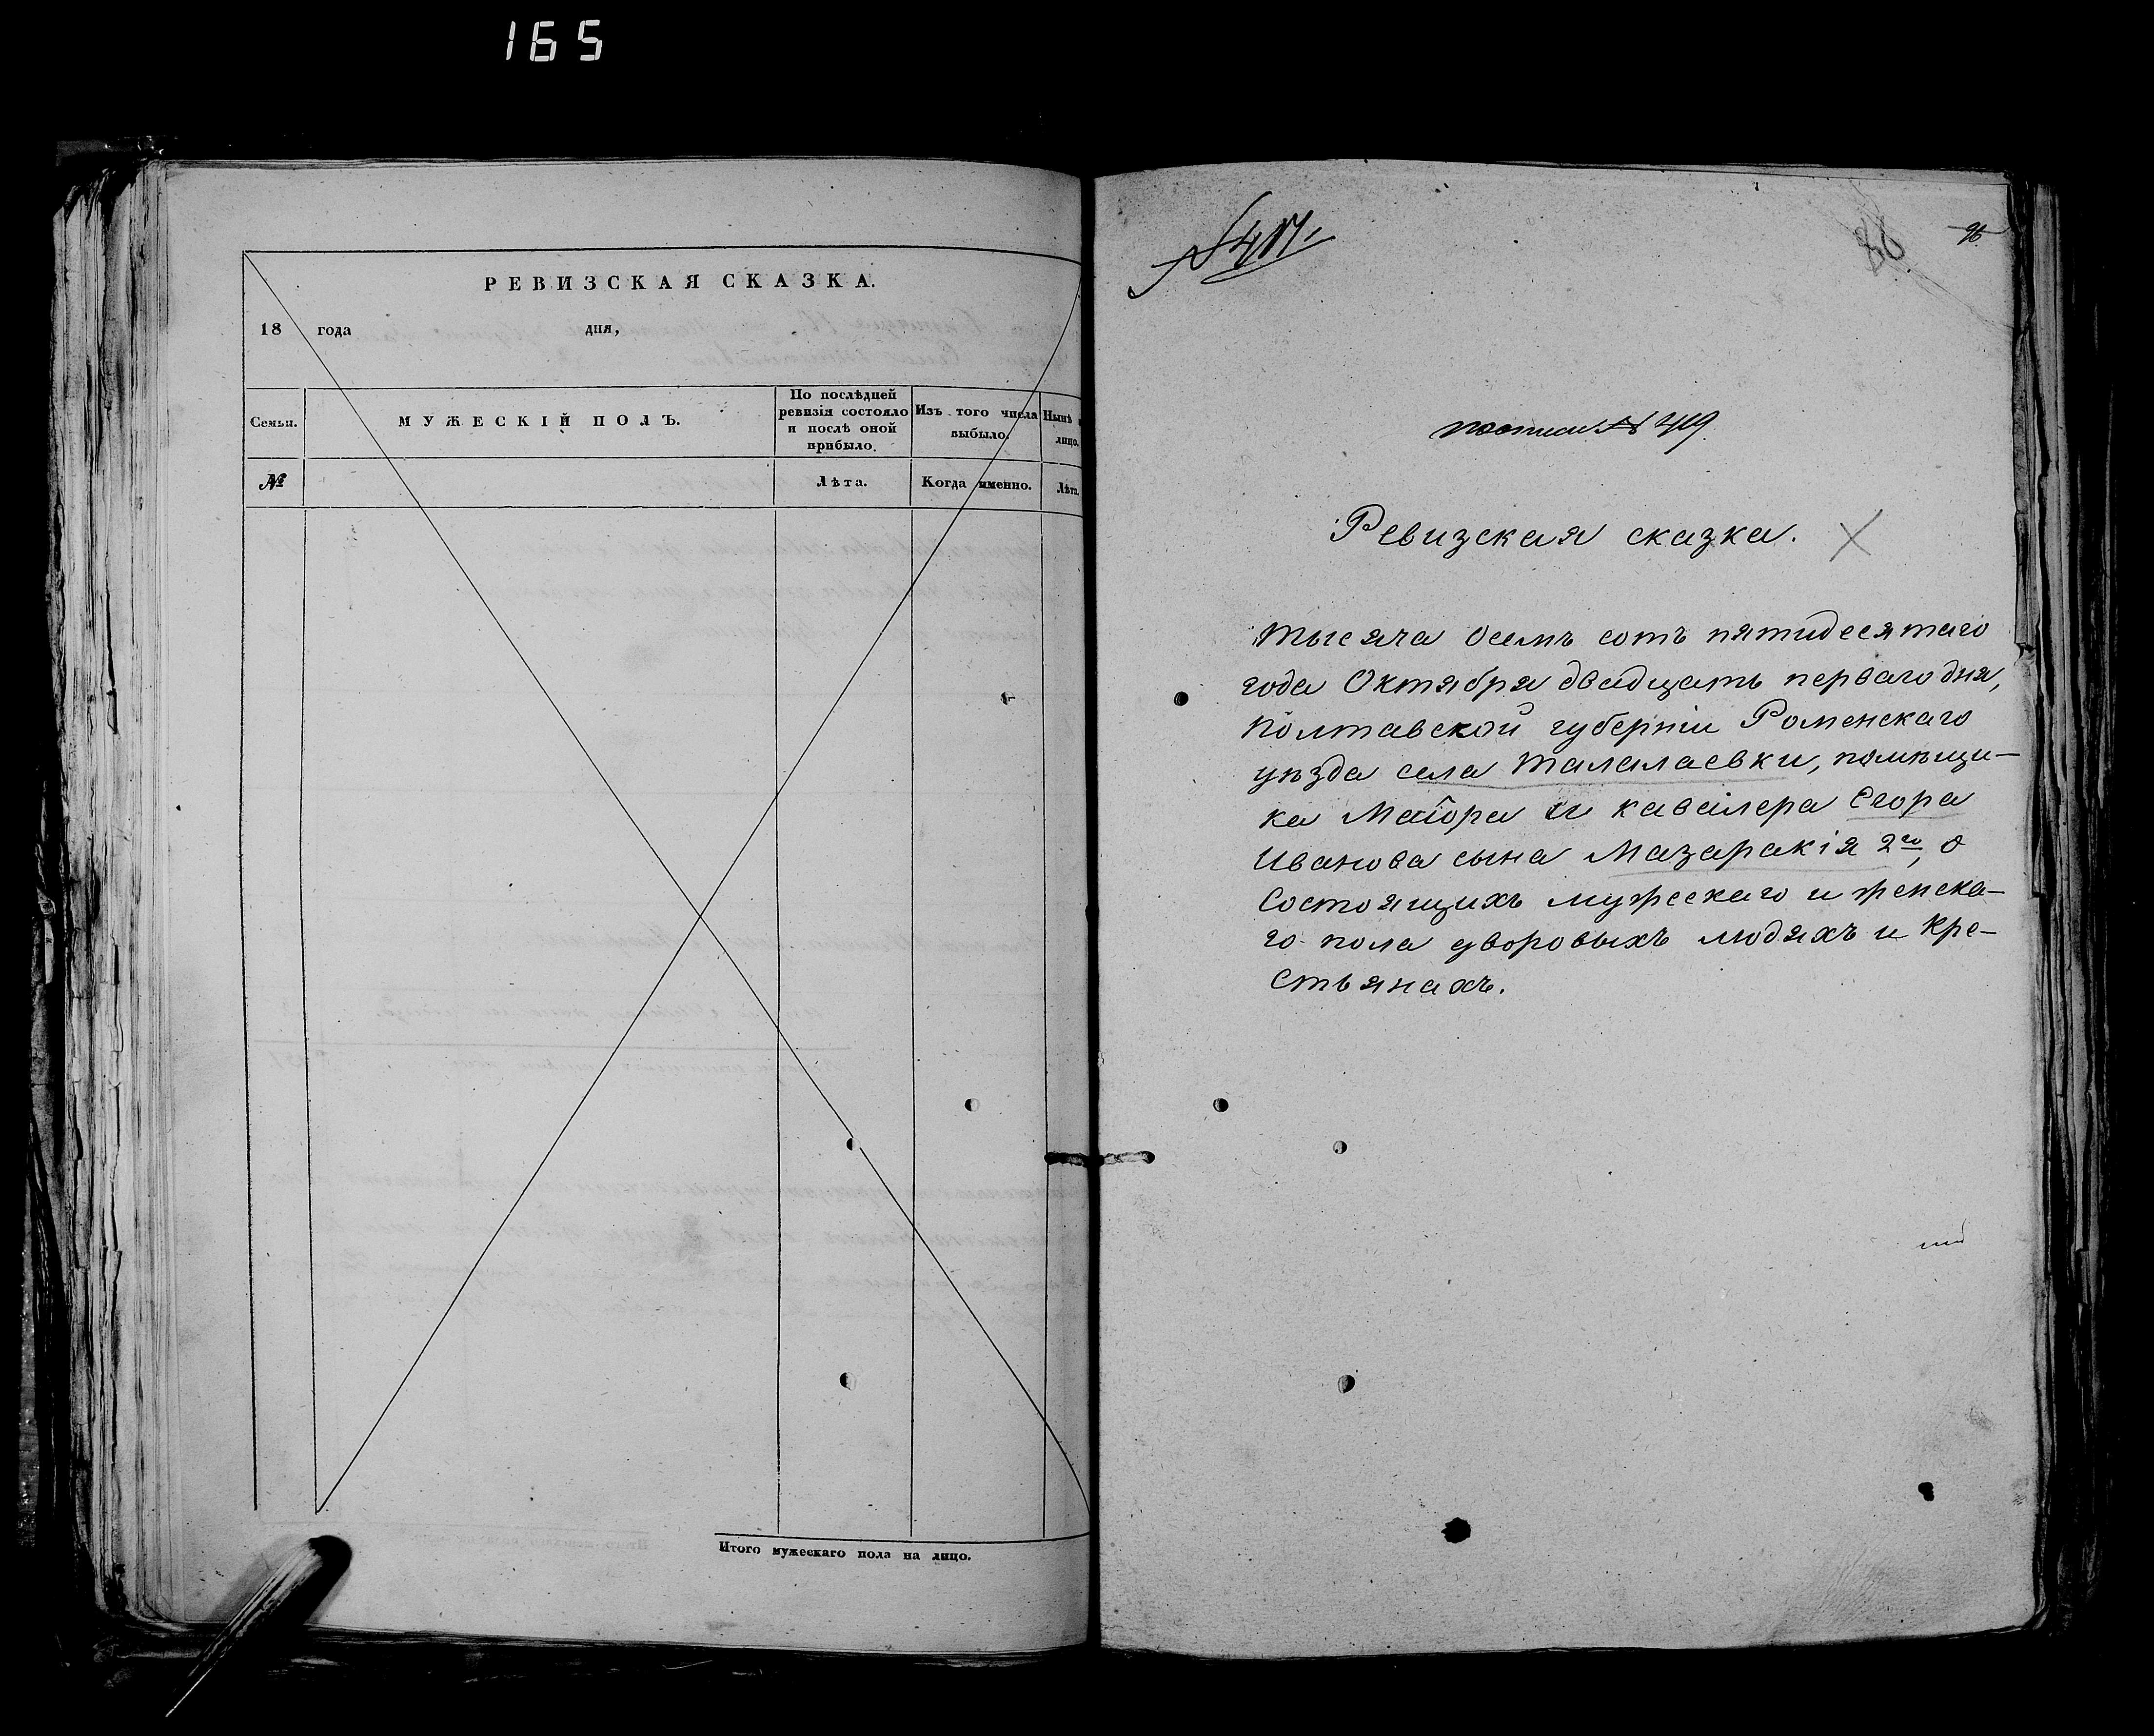 165
РЕВИЗСКАЯ СКАЗКА.
18 года дня,
Семьи.
МУЖЕСКІЙ ПОЛЪ.
По послѣдней
ревизіи состояло
и послѣ оной
прибыло.
Изъ того числа
выбыло.
Нынѣ
лицо.
№
Лѣта.
Когда именно.
Лѣта.
Итого мужескаго пола на лицо.
96
№ 419
Ревизская сказка.
Тысяча восемь сотъ пятидесятаго
года Октября двадцать перваго дня,
Полтавской губерніи Роменскаго
уѣзда села Талалаевки, помѣщи-
ка Маіора и кавалера Егора
Иванова сына Мазаракія 2го, о
состоящихъ мужескаго и женска-
го пола дворовыхъ людяхъ и кре-
стьянахъ.